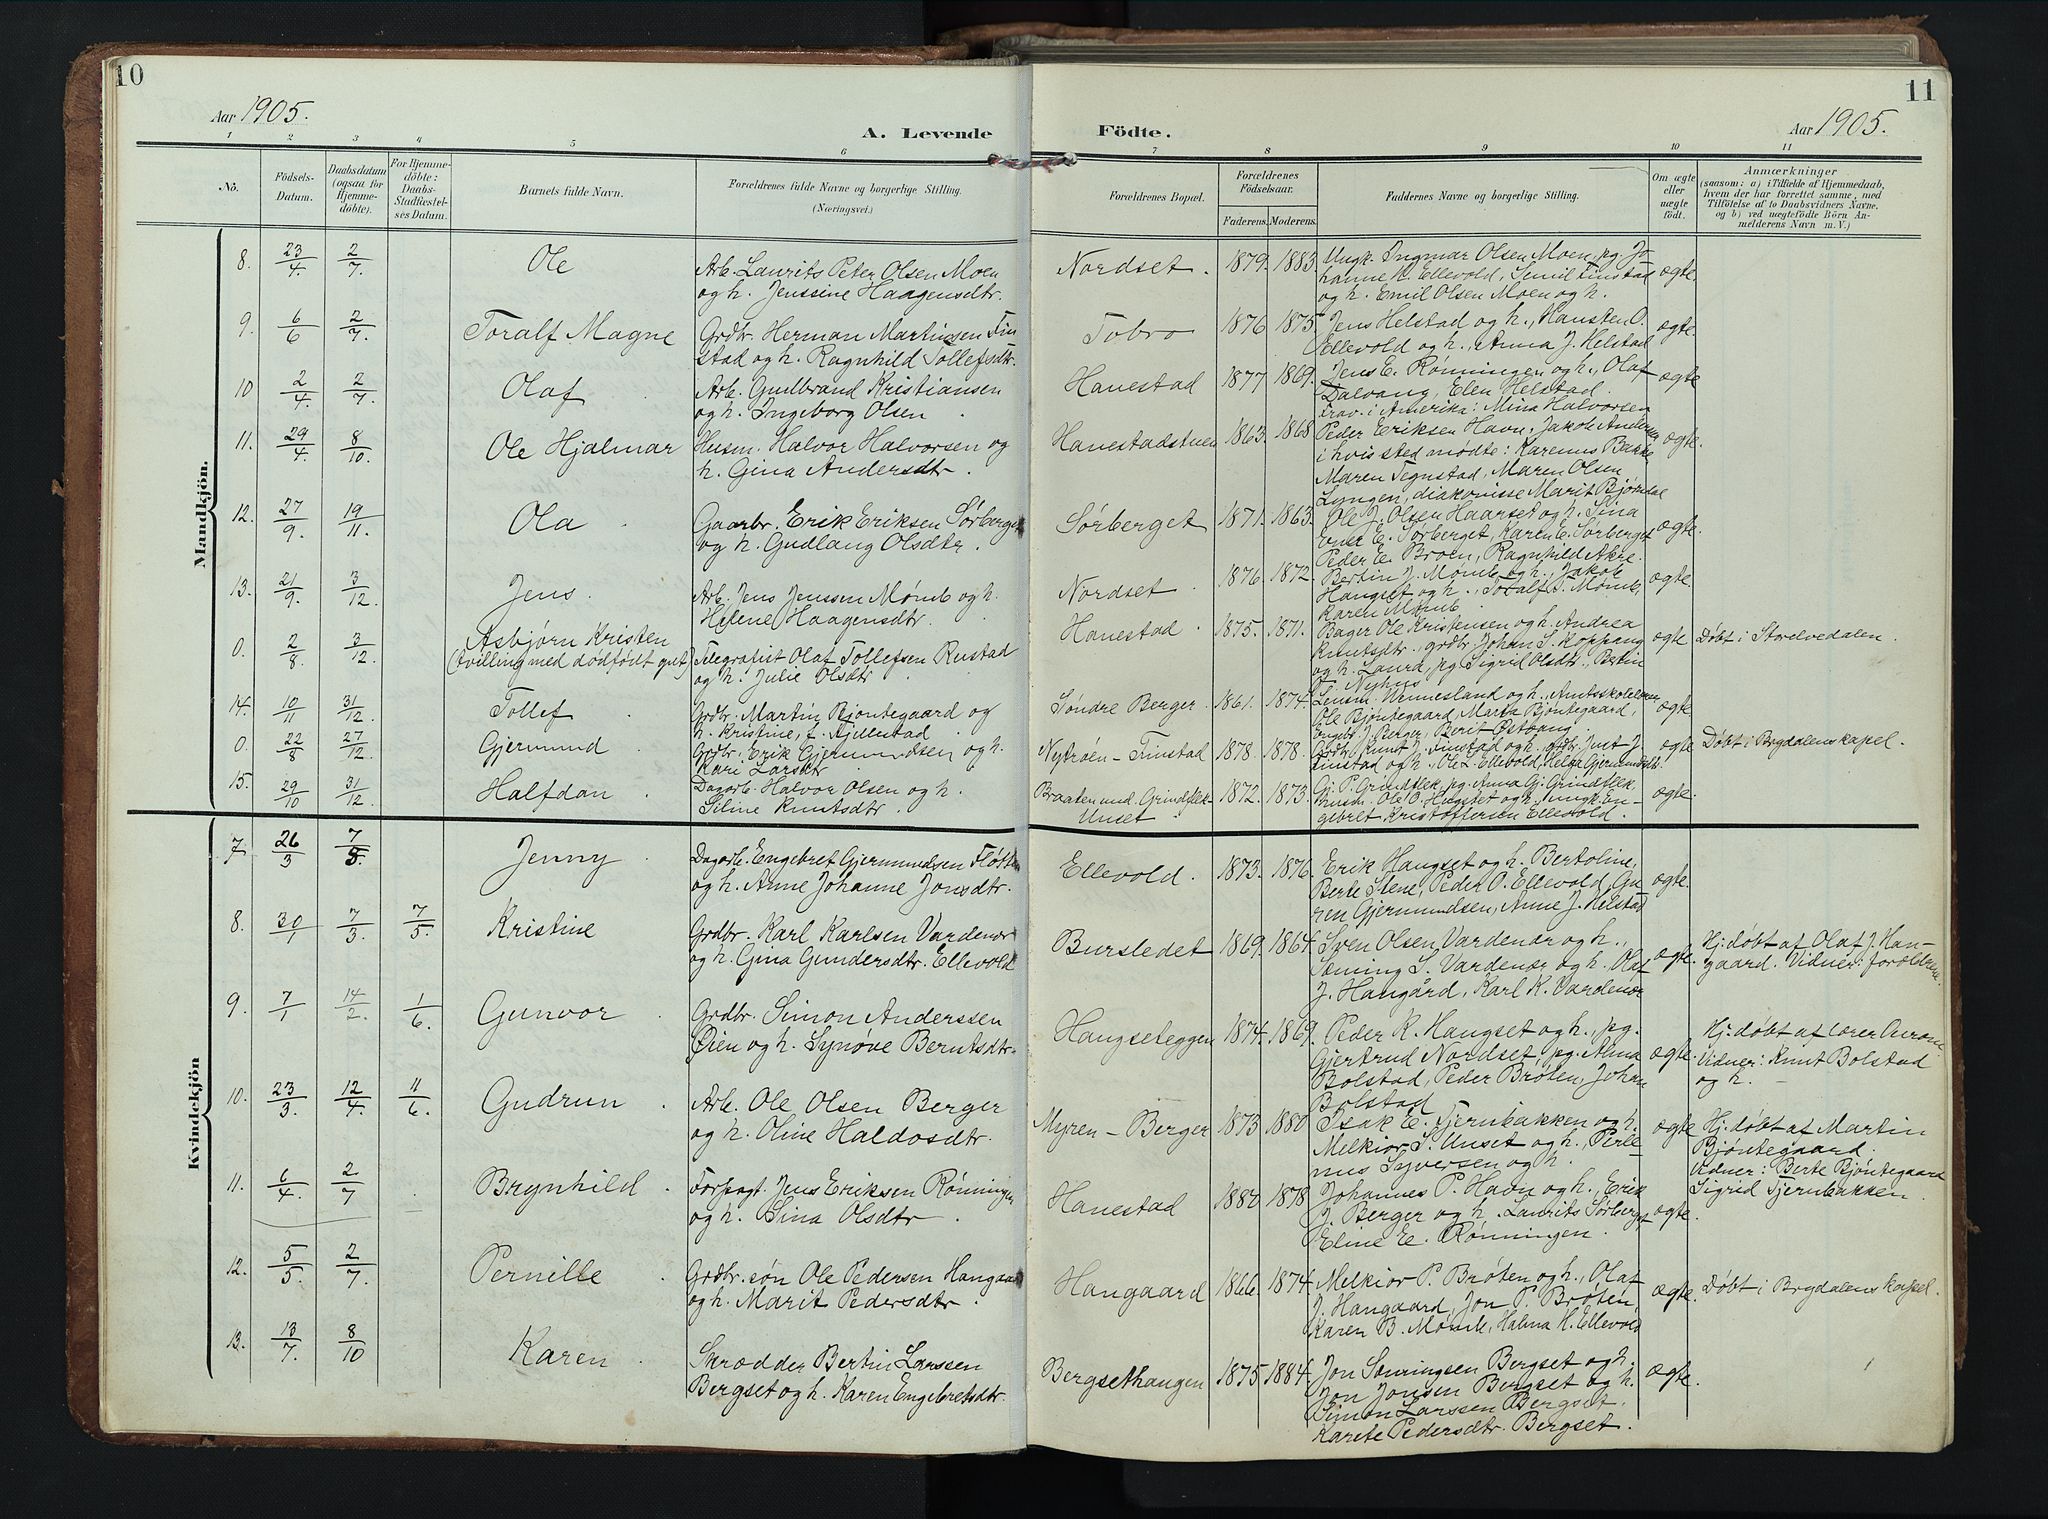 10
Aar 1905.
A. Levende
1 2 3 4 5 6
Nô.
Födsels-Datum.
Daabsdatum (ogsaa for Hjemmedöbte).
For Hjemmedöbte: Daabs-Stadfæstelses Datum.
Barnets fulde Navn.
Forældrenes fulde Navne og borgerlige Stilling.
(Næringsvei.)
Mandkjön.
8. 23/4. 2/7. Ole Arb. Laurits Peter Olsen Moen
og h. Jenssine Haagensdtr.
9. 6/6 2/7. Toralf Magne Grdbr. Herman Martinsen Fin
stad og h. Ragnhild Tollefsdtr.
10 2/4. 2/7. Olaf Arb. Gudbrand Kristiansen
og h. Ingeborg Olsen.
11. 29/4. 8/10. Ole Hjalmar Husm. Halvor Halvorsen og
h. Gina Andersdtr.
12. 27/9. 19/11. Ola Gaarbr. Erik Eriksen Sörberget
og h. Gudlaug Olsdtr.
13. 21/9. 3/12. Jens. Arb. Jens Jenssen Momb og h.
Helene Haagensdtr.
0. 2/8. 3/12. Asbjørn Kristen
(tvilling med dödfödt gut) Telegrafist Olaf Tollefsen Rustad
og h. Julie Olsdtr
14. 10/11 31/12. Tollef Grdbr. Martin Bjöntegaard og
h. Kristine, f. Fjellestad
0. 22/8 27/12. Gjermund Grdbr. Erik Gjermundsen og h.
Kari Larsdtr
15. 29/10 31/12. Halfdan. Dagarb. Halvor Olsen og h.
Siline Knutsdtr.
Kvindekjön
7. 26/3 7/5. Jenny. Dagarb. Engebret Gjermundsen Fløtten
og h. Anne Johanne Jonsdtr.
8. 30/1 7/3. 7/5. Kristine Grdbr. Karl Karlsen Vardenær
og h. Gina Gundersdtr. Ellevold
9. 7/1 14/2. 1/6. Gunvor. Grdbr. Simon Anderssen
Øien og h. Synøve Berntsdtr.
10. 23/3. 12/4. 11/6. Gudrun. Arb. Ole Olsen Berger
og h. Oline Haldosdtr.
11. 6/4. 2/7 Brynhild. Forpagt. Jens Eriksen Rønningen
og h. Sina Olsdtr.
12. 5/5. 2/7. Pernille. Grdbr. søn Ole Pedersen Hangaard
og h. Marit Pedersdtr.
13. 13/7. 8/10 Karen. Skrædder Bertin Larssen
Bergset og h. Karen Engebretsdtr.
11
Födte.
Aar 1905.
7 8 9 10 11
Forældrenes Bopæl.
Forældrenes Födselsaar.
Faderens. Moderens.
Faddernes Navne og borgerlige Stilling.
Om ægte eller uægte födt.
Anmærkninger
(saasom: a) i Tilfælde af Hjemmedaab,
hvem der har forrettet samme, med
Tilföielse af to Daabsvidners Navne,
og b) ved uægtefödte Börn An-
melderens Navn m. V.)
Nordset. 1879. 1883. Ungk. Ingmar Olsen Moen, pg. Jo
hanne K. Ellevold, Semil Finstad ægte.
og h. Emil Olsen Moen og h.
Tobro 1876 1875. Jens Helstad og h., Hansten O.
Ellevold og h., Anna J. Helstad ægte.
Hanestad 1877 1869. Jens E. Rønningen og h., Olaf ægte
Dalvang, Elen Helstad.
frav. i Amerika: Mina Halvorsen
Hanestadstuen 1863. 1868 Peder Eriksen Havn, Jakob Andersen ægte.
i hvis sted mødte: Karenus Bakke
Maren Tegnstad, Maren Olsen
Lyngen, diakonisse Marit Bjørndal
Sörberget 1871. 1863. Ole J. Olsen Haarset og h. Sina
E. Sørberget, Karen E. Sørberget ægte.
Peder E. Broen, Ragnhild Akre.
Nordset. 1876. 1872. Bertin J. Mömb og h., Jakob ægte.
Hangset og h., Toralf T. Mömb,
Karen Mömb
Hanestad. 1875. 1871. Bager Ole Kristensen og h. Andrea
Knutsdtr., grdbr Johan S. Koppang ægte Døbt i Storelvedalen.
og h. Laura, pg Sigrid Olsdtr., Bertin
Nyhus
Søndre Berger. 1861. 1874. Lensm. Wennesland og h., Amtsskolelærer
Ole Bjöntegaard, Marta Bjöntegaard, ægte
Engebr. J. Berger, Berit Østvang
Nytrøen - Finstad 1878. 1878. Grdbr. Knut J. Finstad og h., grdbr. Just J. ægte Døbt i Brydalens kapel.
Finstad og h., Ole L. Ellevold, Helga Gjermundsdtr.
Braaten und. Grindflek- 1872. 1873. Gj. P. Grindflek, pg. Anna Gj. Grindflek,
Unset. husm. Ole O. Hugstet og h., ungk. En- ægte.
gebret Kristoffersen Ellevold.
Ellevold. 1873. 1876. Erik Hangset og h. Bertoline,
Berte Stene, Peder O. Ellevold, Gu- ægte.
ren Gjermundsen, Anne J. Helstad
Bursledet 1869. 1864. Sven Olsen Vardenær og h.,
Sæming S. Vardenær og h. Olaf ægte. Hj: døbt af Olaf J. Han-
gaard. Vidner: forældrene.
J. Hangård, Karl K. Vardenær
Hangseteggen 1874. 1869. Peder K. Hangset og h., pg.
Gjertrud Nordset, pg. Alma ægte. Hj: døbt af lærer
Bolstad, Peder Brøten, Johan Vidner: Knut Bolstad
Bolstad og h.
Myren - Berger 1873 1880 Isak E. Tjernbakken og h. ægte Hj: døbt af Martin
Melkior S. Unset og h. Perle- Bjöntegaard.
nus Syversen og h. Vidner: Berte Bjöntegaard
Sigrid Tjernbakken.
Hanestad 1880 1878 Johannes P. Havn og h., Erik
J. Berger og h. Laurits Sörberget ægte.
Eline E. Rønningen.
Hangaard 1866. 1874. Melkior P. Brøten og h., Olaf
J. Hangaard, Jon P. Brøten, ægte. Døbt i Brydalens kapel.
Karen B. Mömb, Halma H. Ellevold
Bergsethaugen 1875 1884. Jon Sæmingsen Bergset og h.
Jon Jonsen Bergset og h. ægte.
Simon Larssen Bergset.
Karete Pedersdtr. Bergset.